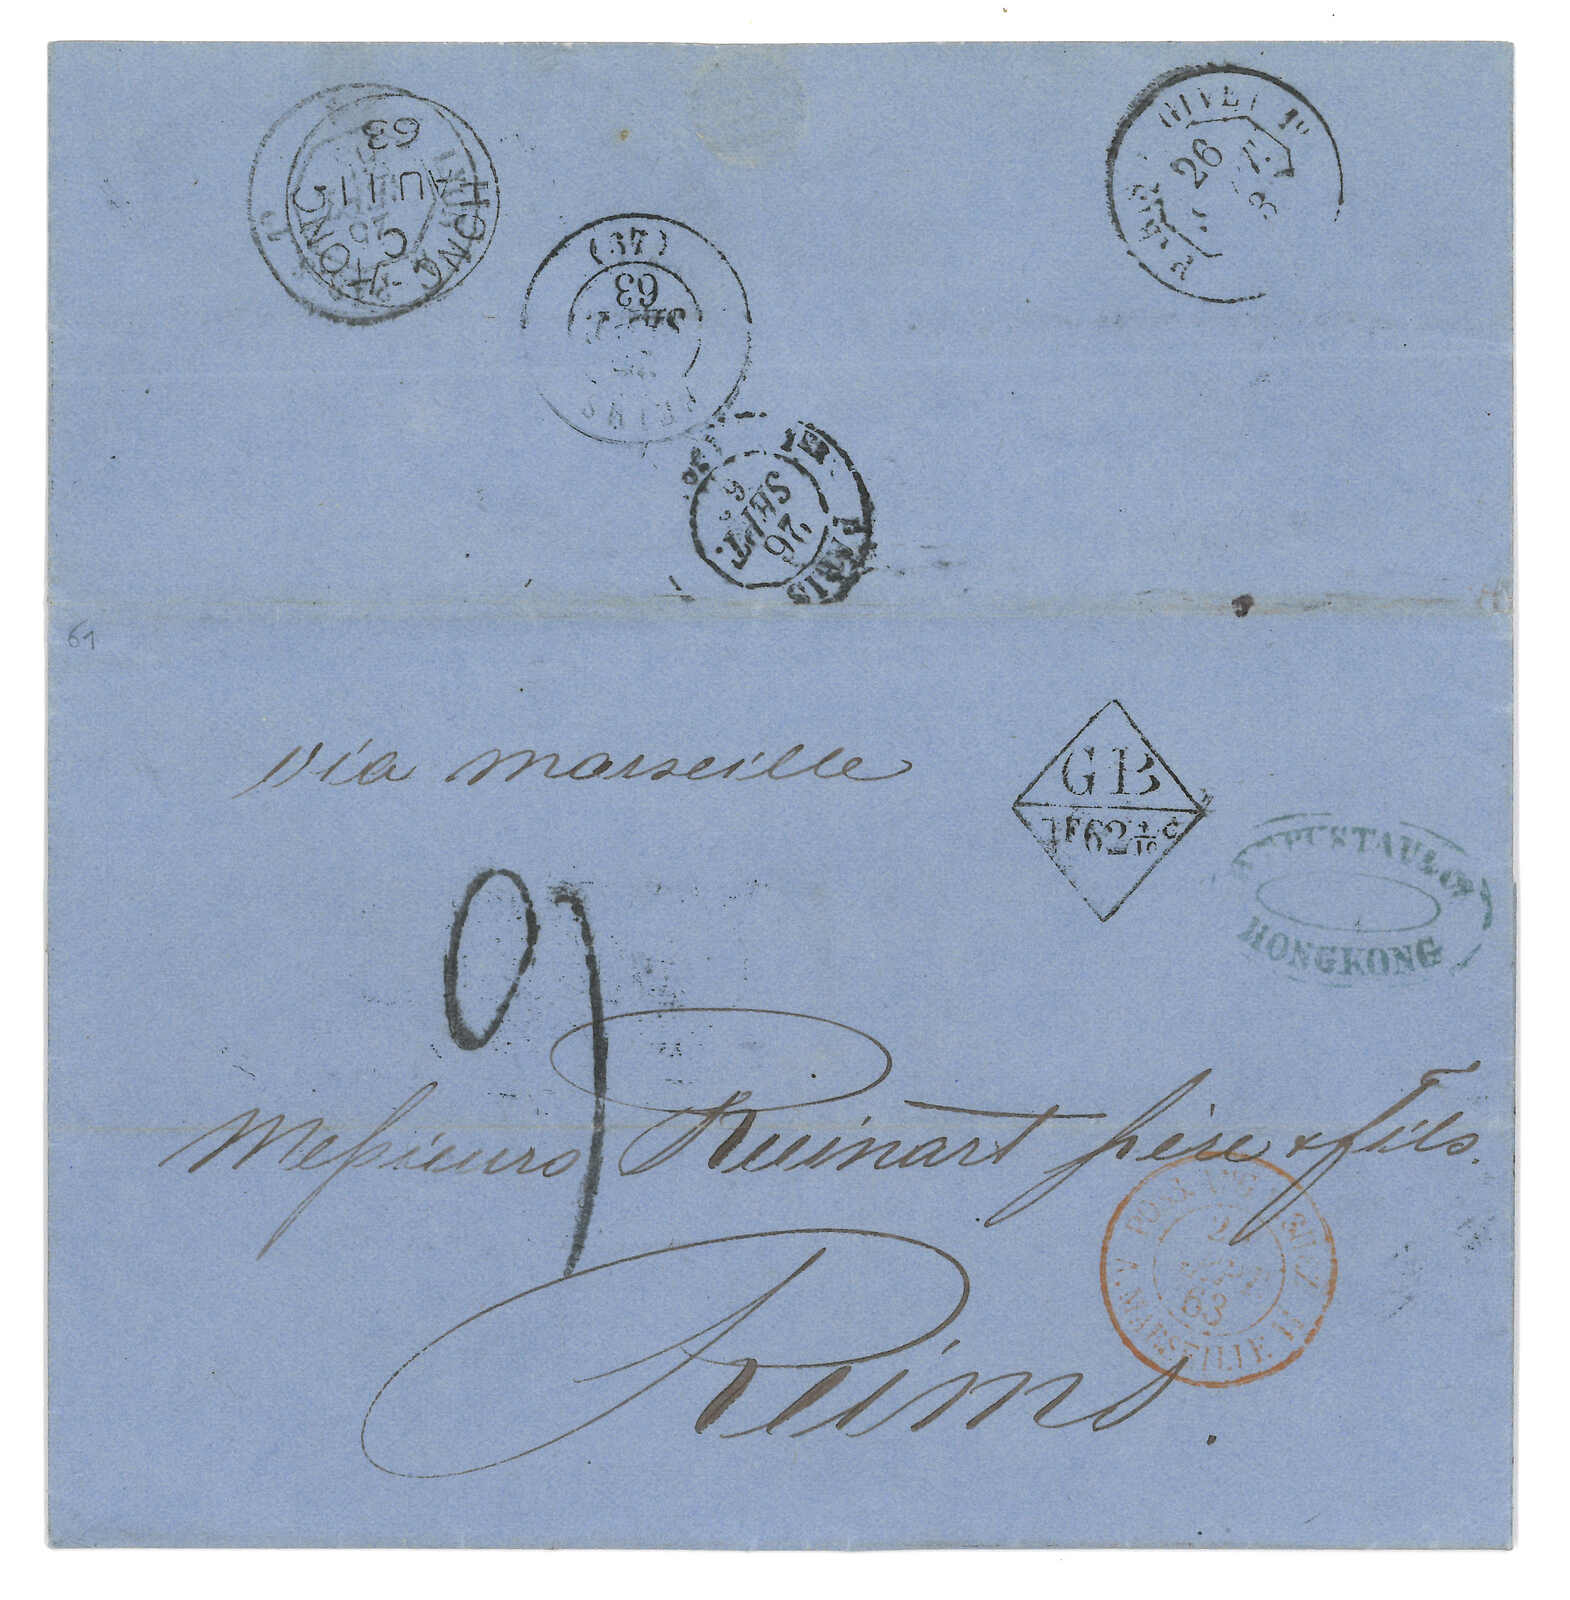 HONG-KONG
C
AU 11
63
(37)
63
26
26
SEPT.
PARIS
61
via marseille
GB
1F62 4/10 C
PUSTAU & Co
HONGKONG
9
Messieurs Ruinart père & fils.
Reims.
SUEZ
2
63
MARSEILLE